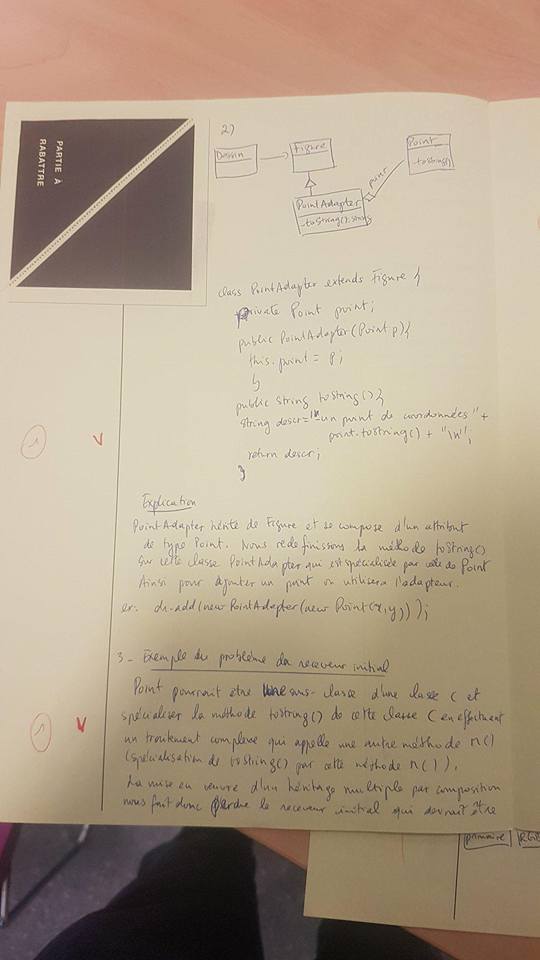 PARTIE À
RABATTRE
2)
Dessin
Figure
Point
-toString()
point
PointAdapter
-toString():string
class PointAdapter extends Figure {
private Point point;
public PointAdapter(Point p){
this.point = p;
}
public string toString(){
string descr="-un point de coordonnées" +
point.toString() + "\n";
return descr;
}
1
v
Explication
PointAdapter hérite de Figure et se compose d'un attribut
de type Point. Nous redefinissons la méthode toString()
sur cette classe PointAdapter qui est spécialisée par celle de Point
Ainsi pour ajouter un point on utilisera l'adapteur.
ex: dr.add(new PointAdapter(new Point(x,y)));
3 - Exemple du problème du receveur initial
Point pourrait etre une sous-classe d'une classe C et
spécialiser la méthode toString() de cette classe C en effectuant
un traitement complexe qui appelle une autre méthode n()
(spécialisation de toString() par cette méthode n()).
1
v
La mise en œuvre d'un héritage multiple par composition
nous fait donc perdre le receveur initial qui devrait être
primaire